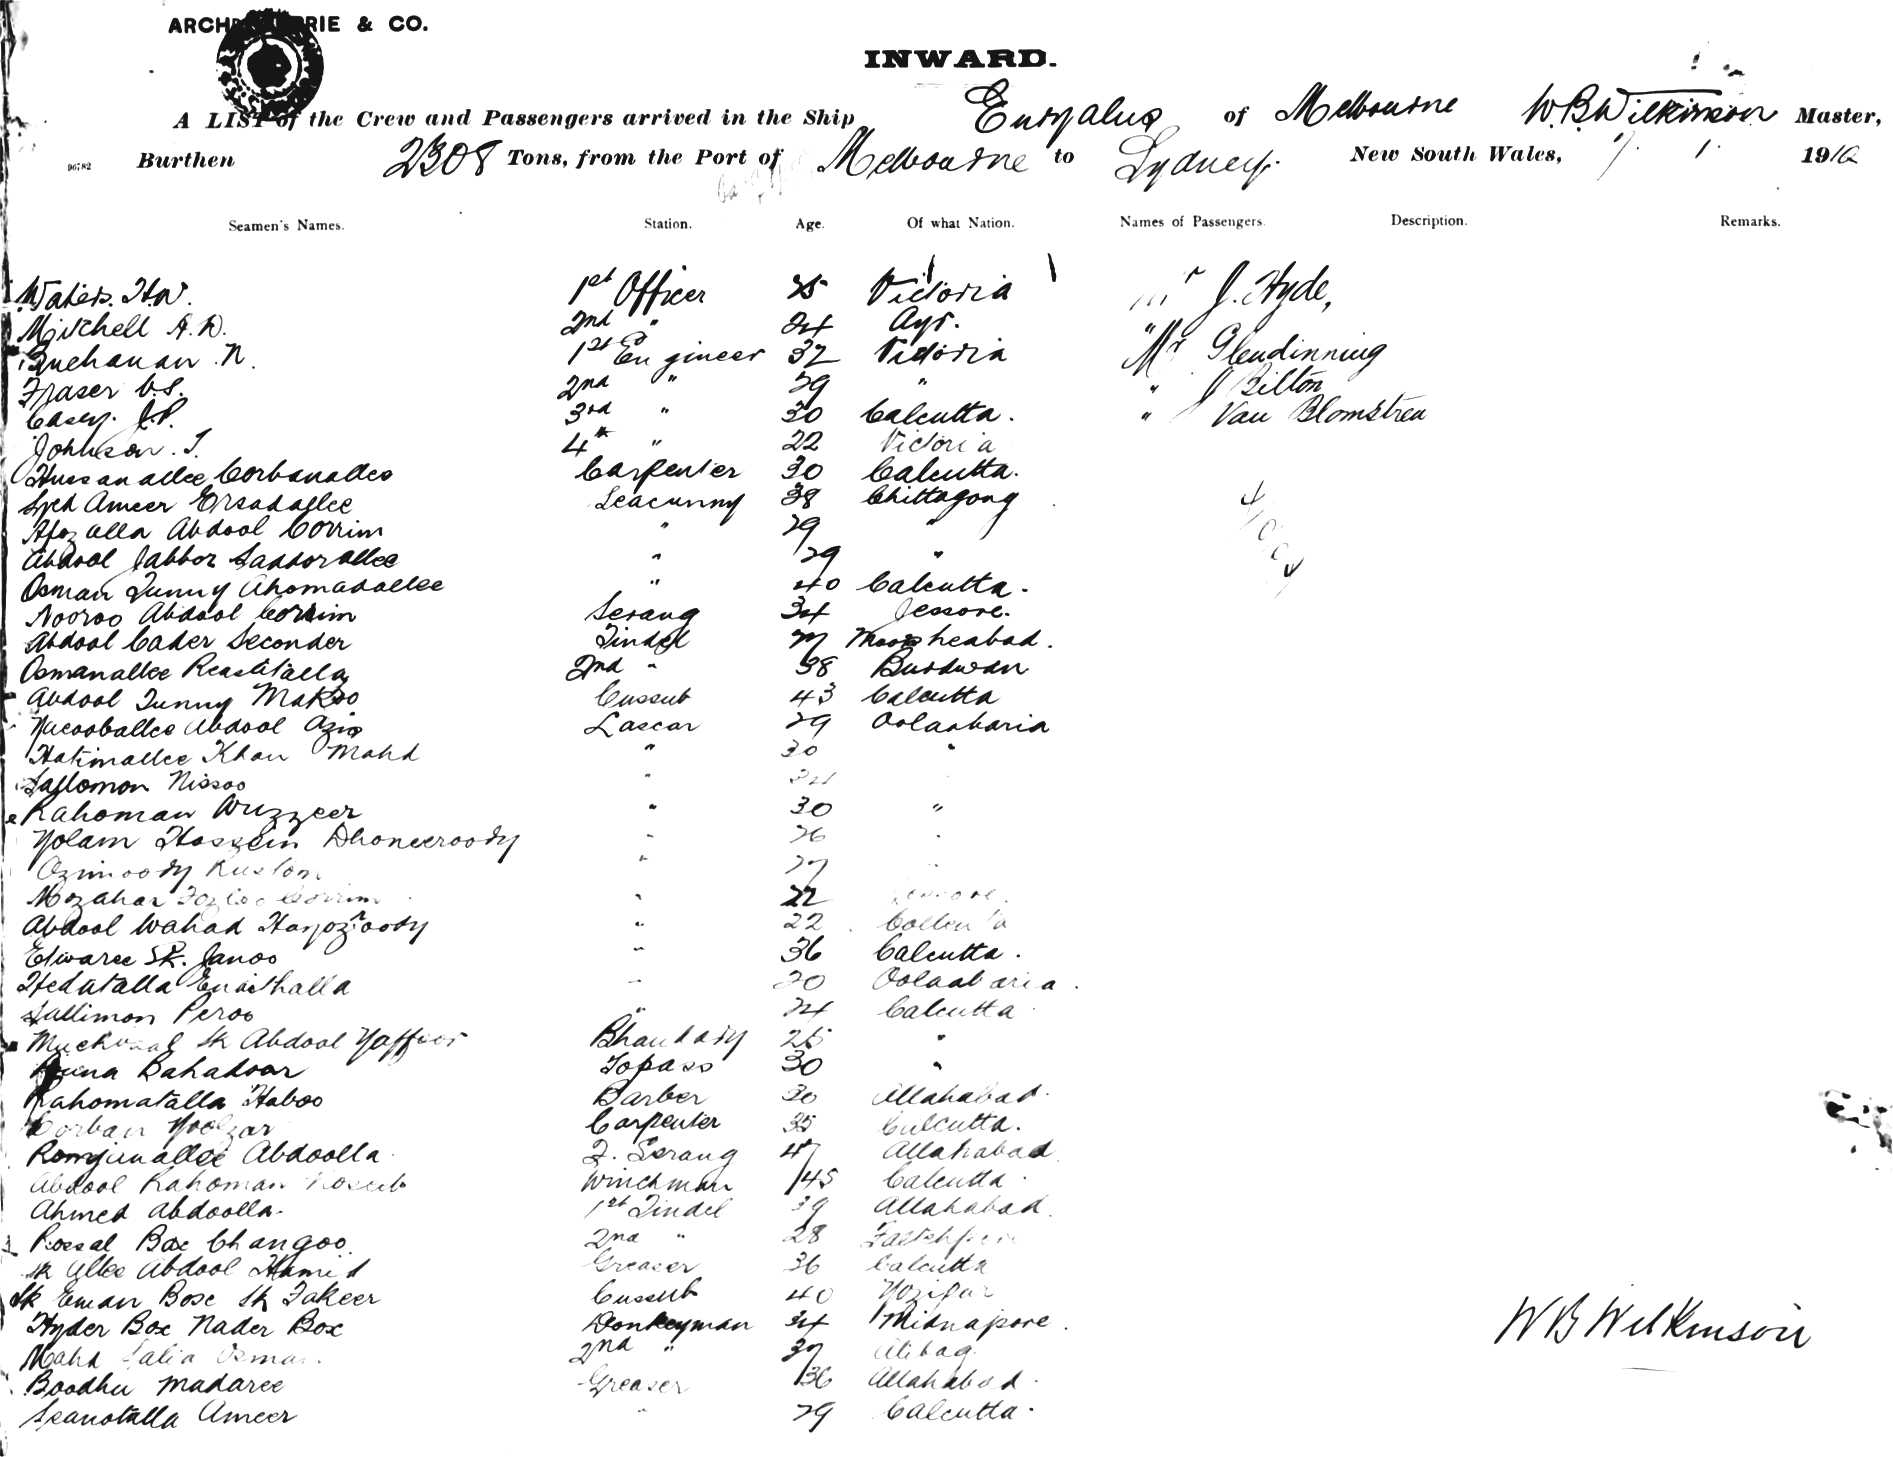 ARCH & CO.
INWARD.
A LIST of the Crew and Passengers arrived in the Ship Euryalus of Melbourne W.B. Wilkinson Master,
96782 Burthen 2308 Tons, from the Port of Melbourne to Sydney. New South Wales, 7. 1. 1910
Seamen's Names. Station. Age. Of what Nation. Names of Passengers. Description. Remarks.
Waters. H.W. 1st Officer 25 Victoria Mr J. Hyde,
Mitchell A.D. 2nd " 24 Ayr.
Buchanan N. 1st Engineer 32 Victoria Mr Glendinning
Fraser V.S. 2nd " 29 " " J Bilton
Casey. J.P. 3rd " 30 Calcutta. " Van Blomstren
Johnson. T. 4th " 22 Victoria
Hussanallee Corbanallee Carpenter 30 Calcutta.
Syed Ameer Ersadallee Seacunny 38 Chittagong
Afozalla Abdool Corrim " 29 "
Abdool Jabbor Saddorallee " 29 "
Osman Gunny Ahomadallee " 40 Calcutta.
Nooroo Abdool Corrim Serang 34 Jessore.
Abdool Cader Seconder Tindel Moorsheabad.
Osmanallee Reasutalla 2nd " 38 Burdwan
Abdool Gunny Makoo Cussub 43 Calcutta
Yucooballee Abdool Azis Lascar 29 Oolaabaria
Hatimallee Khan Mahd " 30 "
Sallomon Nissoo " 24
Rahoman Wuzzeer " 30 "
Golam Hossein Dhoneeroody " 26 "
Ozimoody Rustom " 27 "
Mozahar Corrim " 22
Abdool Wahad " 22
Etwaree Sk. Janoo " 36 Calcutta.
Hedutalla Enaithalla " 20 Oolaabaria.
Sallimon Peroo " 24 Calcutta
Sk Abdool Gaffoor Bhandary 25 "
Bahadoor Topass 30 "
Rahomatalla Haboo Barber 30 Allahabad.
Corban Carpenter 35 Calcutta.
Romjunallee Abdoolla F. Serang 47 Allahabad.
Abdool Rahoman Winchman 45 Calcutta
Ahmed Abdoolla. 1st Tindel 39 Allahabad.
Rossal Box Changoo 2nd " 28
Sk Allee Abdool Hamid Greaser 36 Calcutta
Sk Eman Bose Sk Fakeer Cussub 40
Hyder Box Nader Box Donkeyman 34 Midnapore.
Mahd Osman. 2nd " 37 Alibag
Boodhu Madaree Greaser 36 Allahabad.
Seanotalla Ameer " 29 Calcutta.
W B Wilkinson